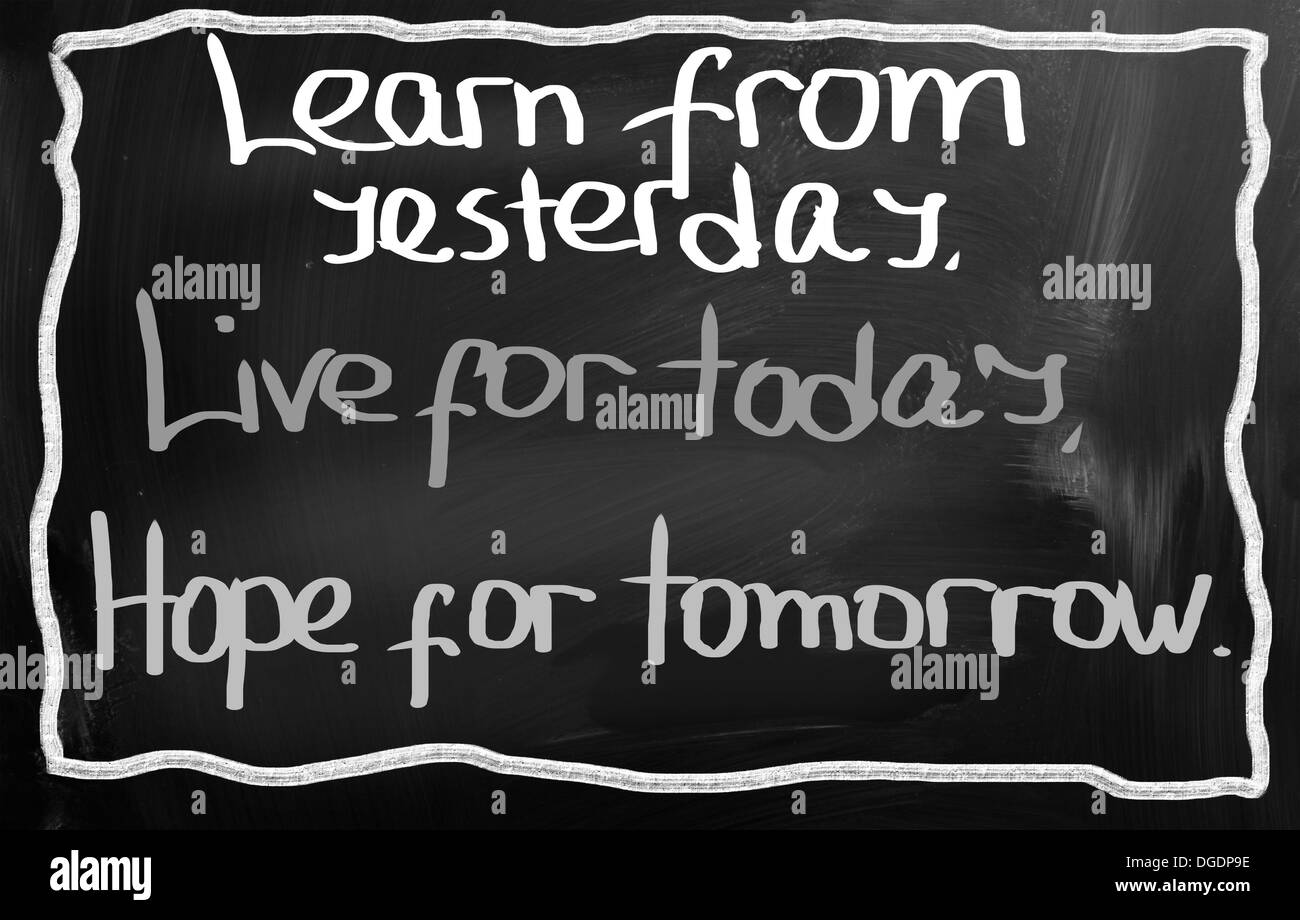 Learn from
yesterday.
Live for today,
Hope for tomorrow.
alamy
alamy
alamy
alamy
alamy
a a a a
a a a a
a a a a
alamy
Image ID: DGDP9E
www.alamy.com